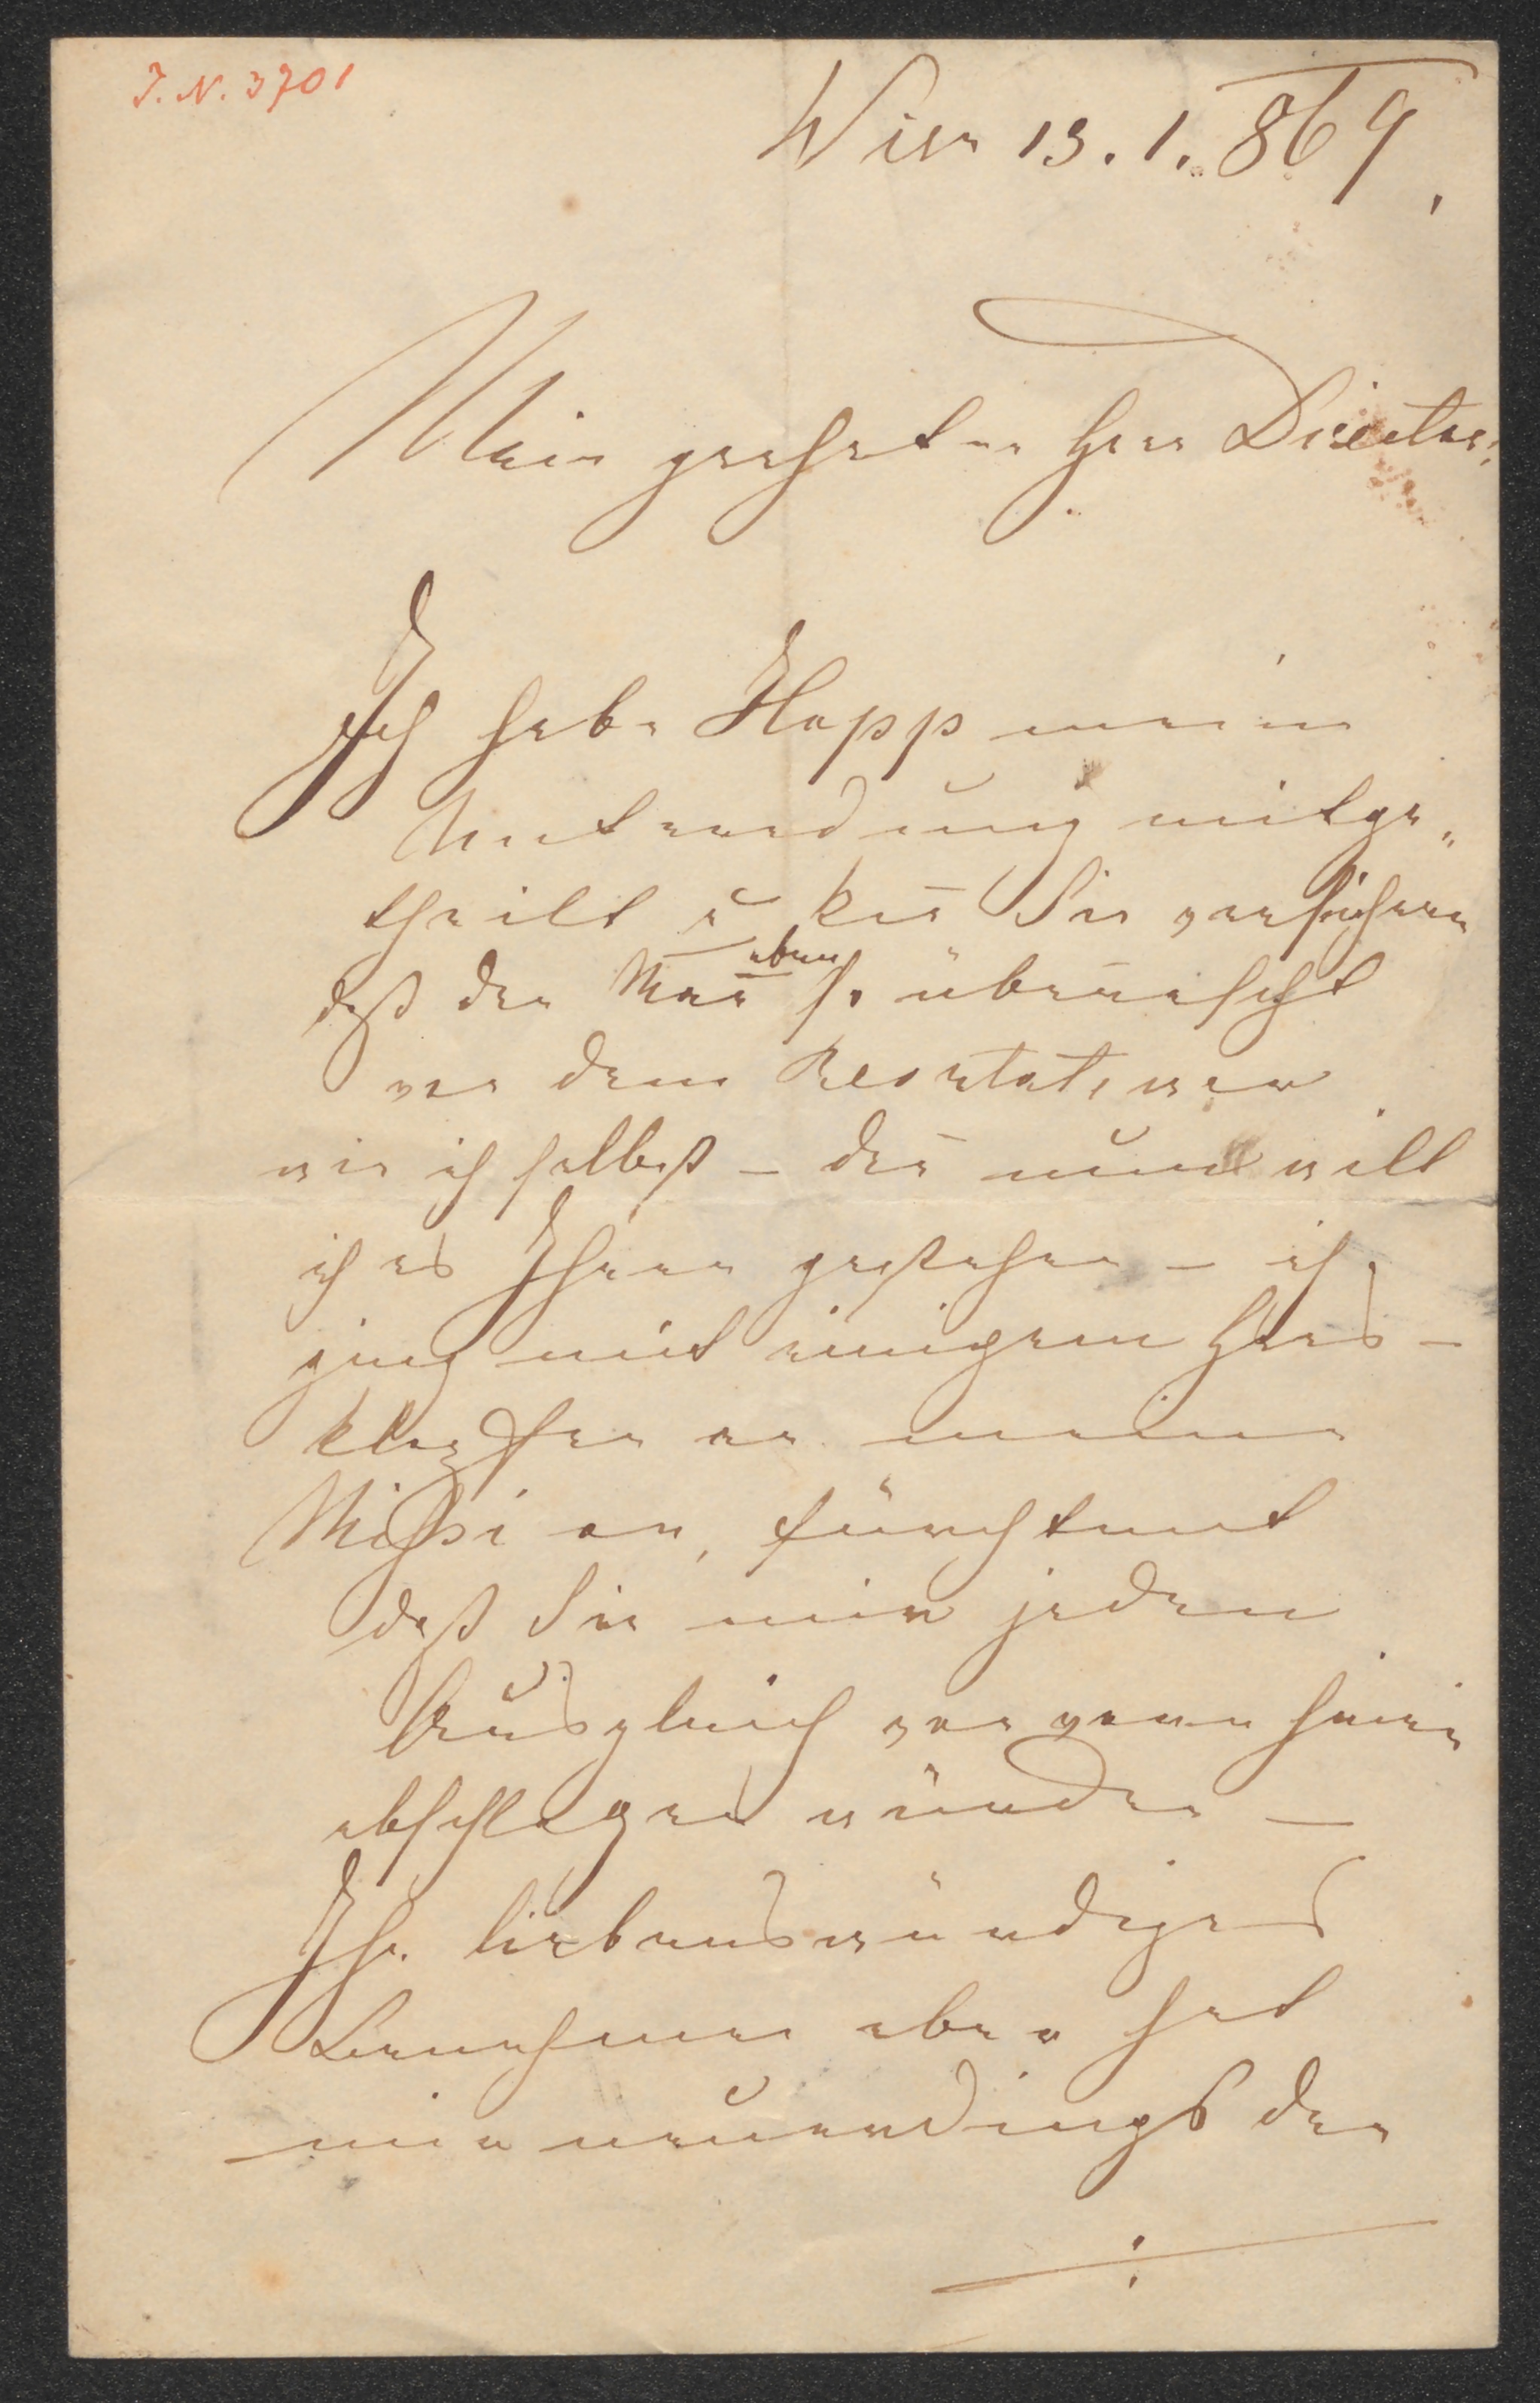 I. N. 3701
Wien 13. 1. 869.
Mein geehrter Herr Director!
Ich habe Hopp meine
Unterredung mitge„
theilt u kan̄ Sie versichern
daß der Man̄ eben so überrascht
von dem Resultat, war
wie ich selbst – den̄ nun will
ich es Ihnen gestehen – ich
ging mit einigem Herz–
klopfen an meine
Mission, fürchtend
daß Sie mir jeden
Ausgleich von vorn herein
abschlagen würden –
Ihr liebenswürdiges
Benehmen aber hat
mir neuerdings den